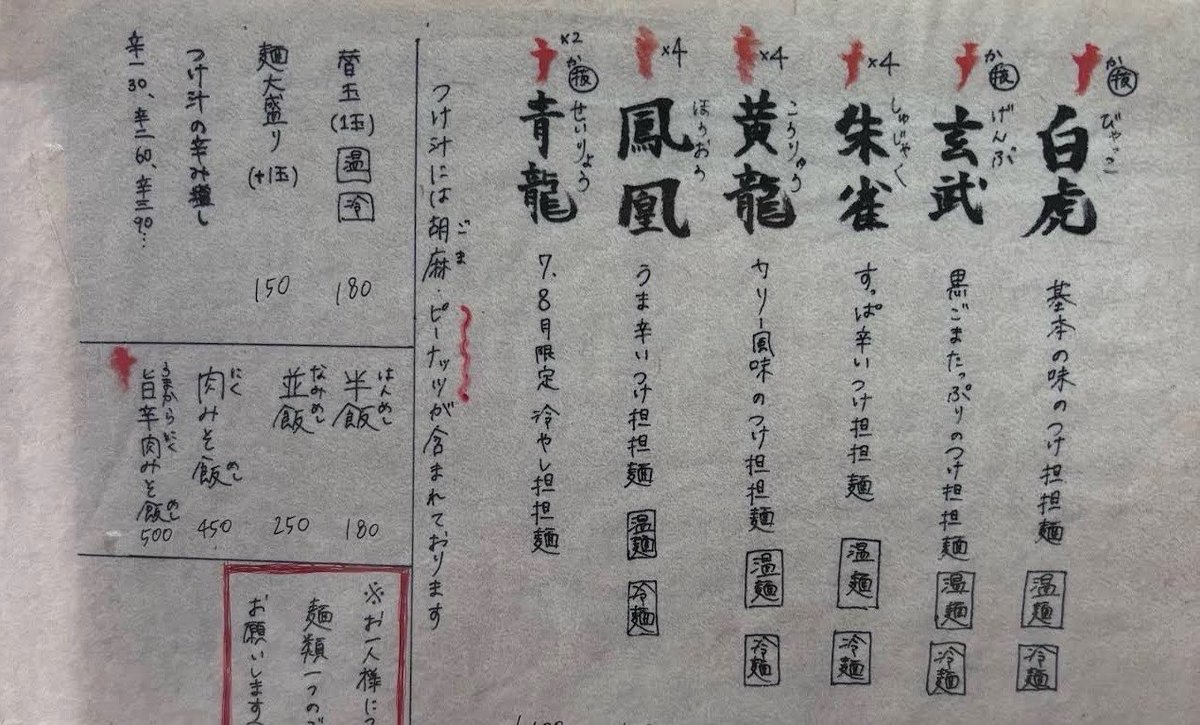 か抜
白虎 びゃっこ 基本の味のつけ担担麺 温麺 冷麺
か抜
玄武 げんぶ 黒ごまたっぷりのつけ担担麺 温麺 冷麺
×4
朱雀 しゅじゃく すっぱ辛いつけ担担麺 温麺 冷麺
×4
黄龍 こうりゅう カリー風味のつけ担担麺 温麺 冷麺
×4
鳳凰 ほうおう うま辛いつけ担担麺 温麺 冷麺
×2 か抜
青龍 せいりょう 7.8月限定 冷やし担担麺
つけ汁には胡麻・ピーナッツが含まれております ごま
替玉(1玉) 温 冷 180
麺大盛り(+1玉) 150
つけ汁の辛み増し
辛一30、辛二60、辛三90…
半飯 はんめし 180
並飯 なみめし 250
肉みそ飯 にく めし 450
旨辛肉みそ飯 うまからにく めし 500
※お一人様に
麺類一つのご
お願いします